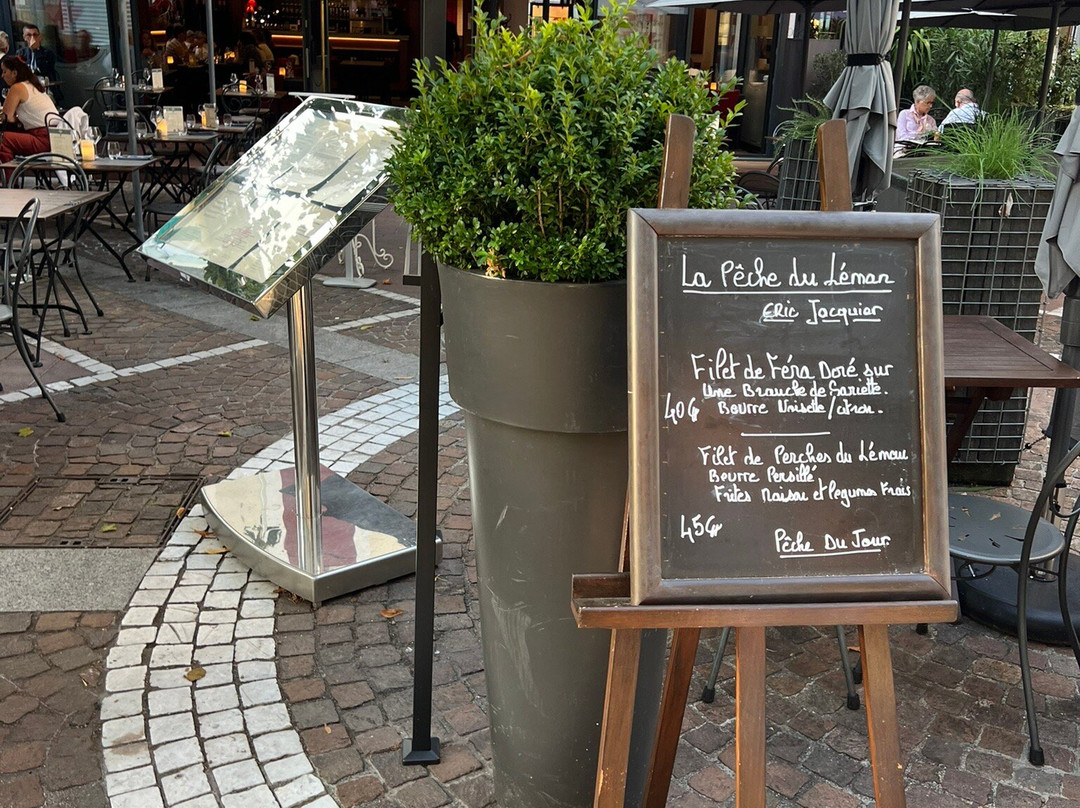 La Pêche du Léman
Eric Jacquier
Filet de Féra Doré sur
Une Branche de Sariette.
40€ Beurre Noisette/citron.
Filet de Perches du Léman
Beurre Persillé
Frites Maison et legumes Frais
45€
Pêche Du Jour